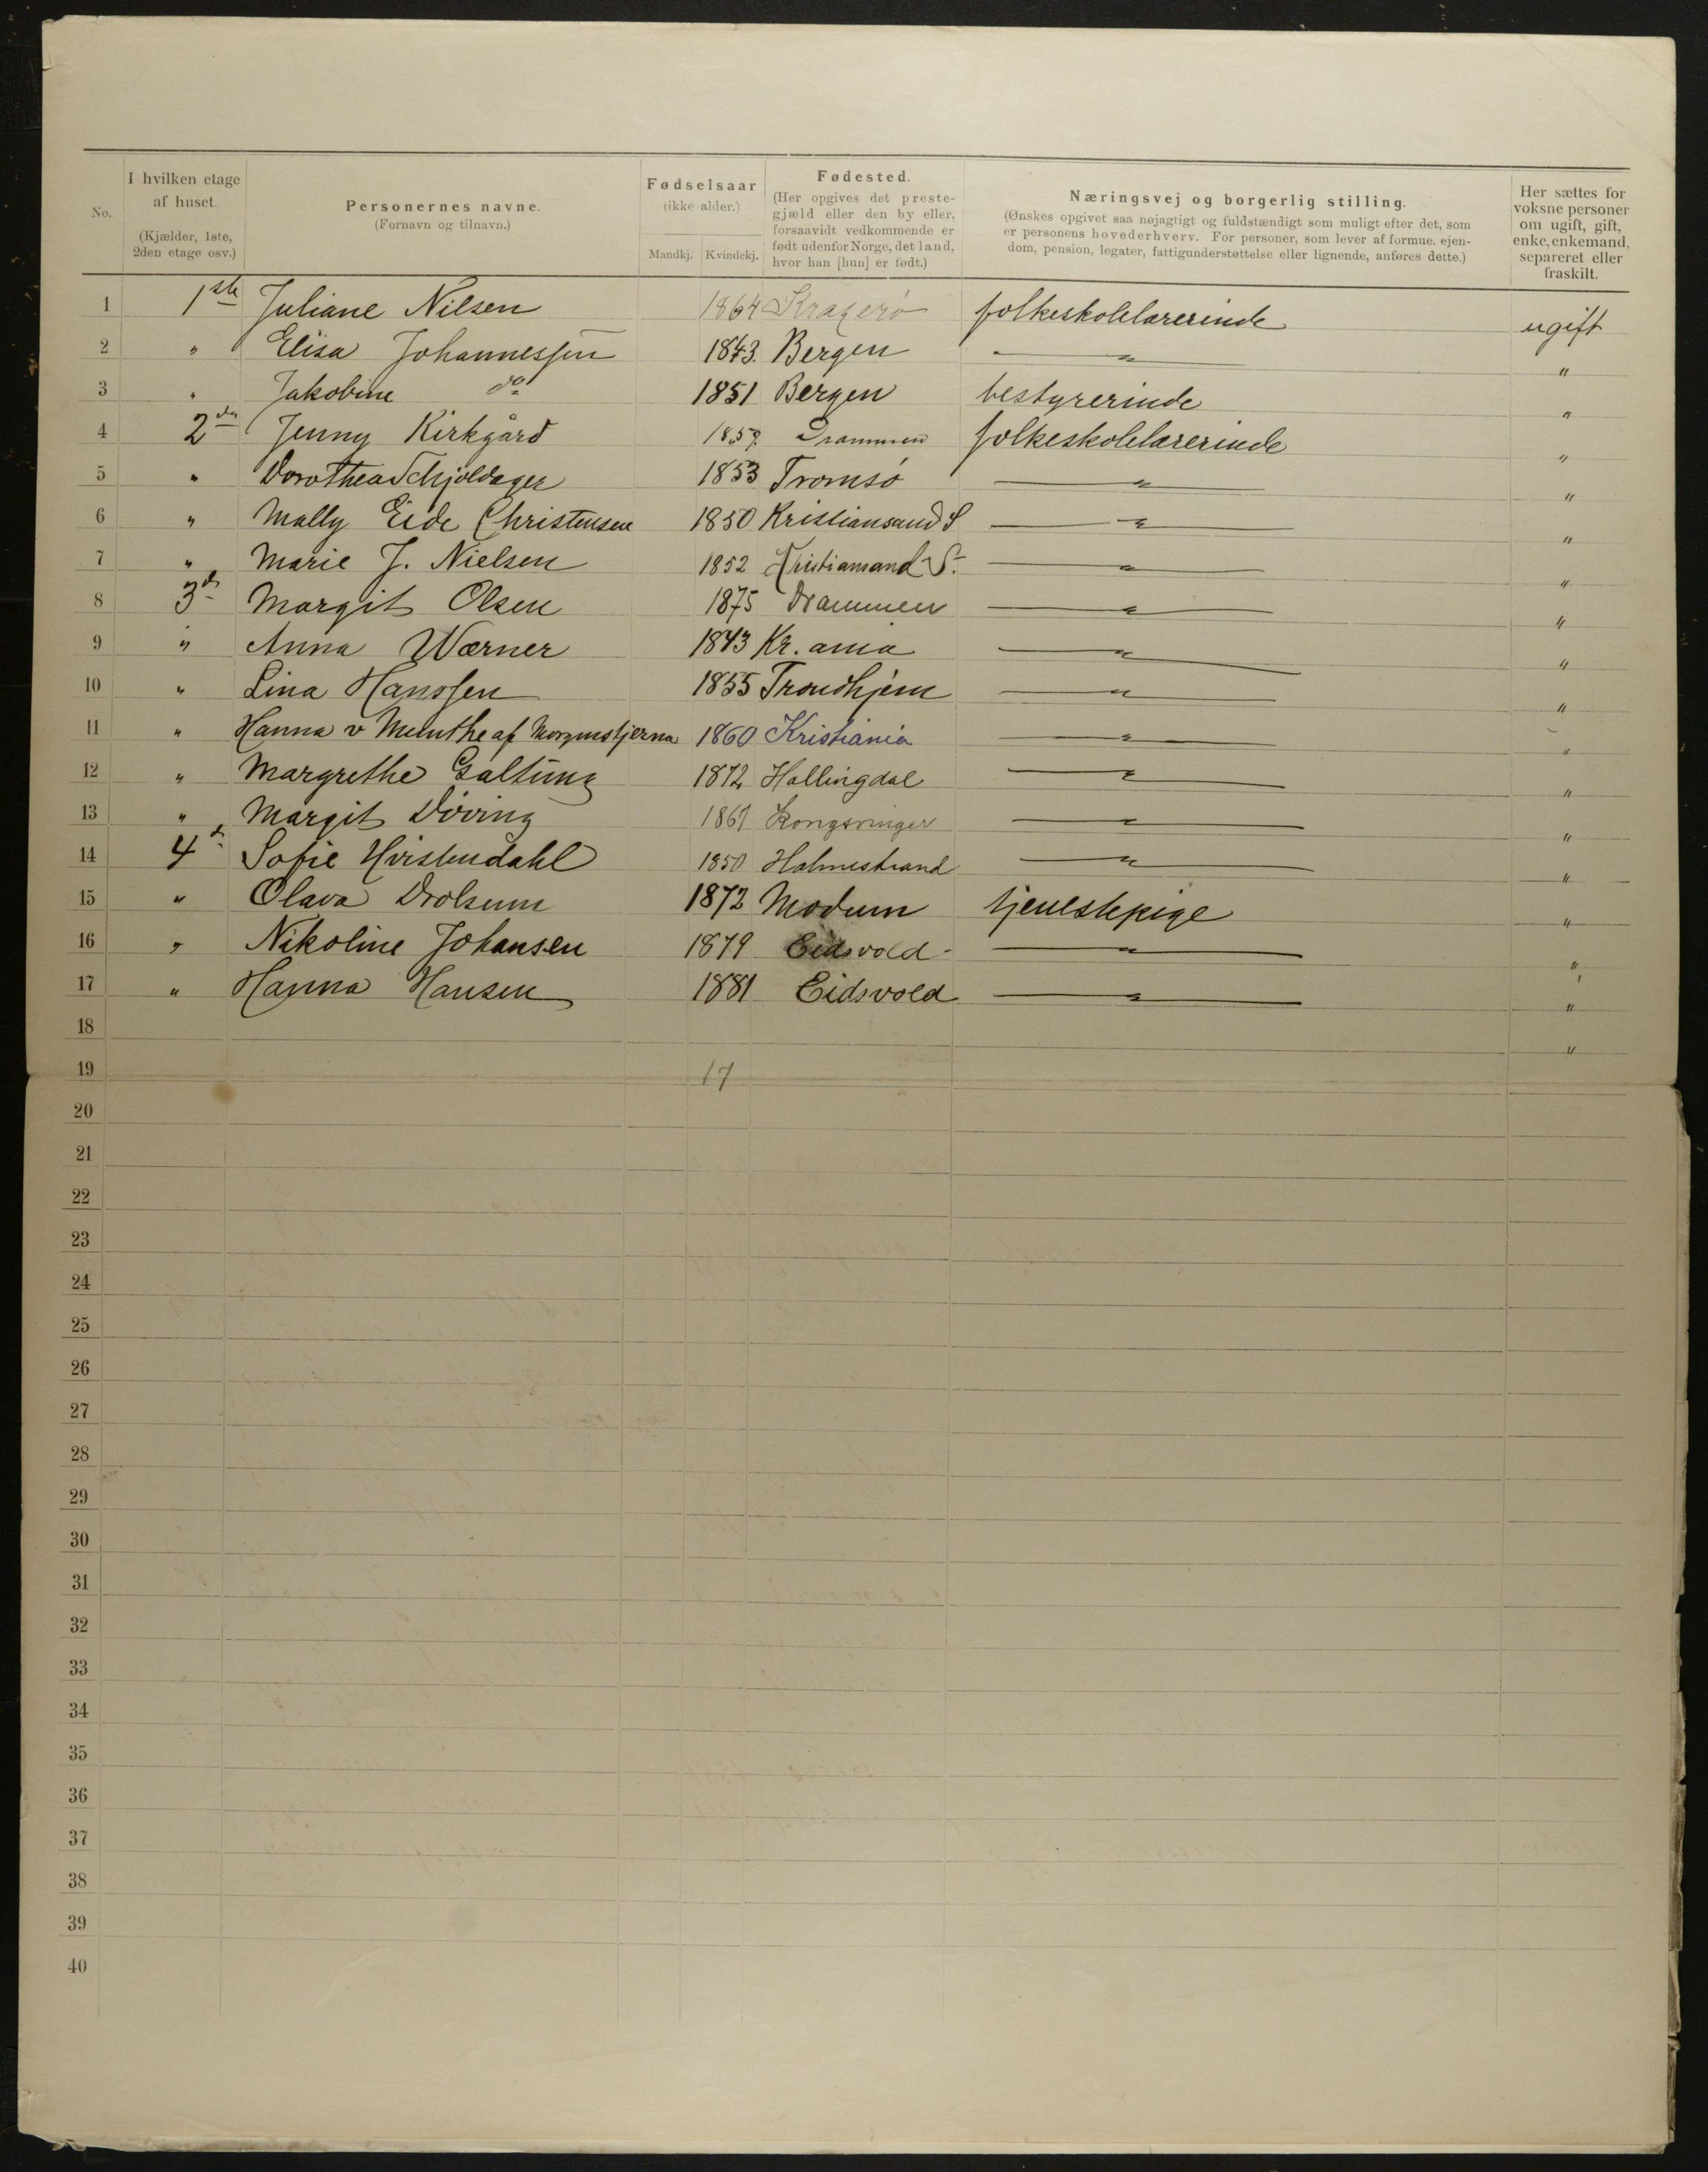 No. | I hvilken etage af huset. (Kjælder, 1ste, 2den etage osv.) | Personernes navne. (Fornavn og tilnavn.) | Fødselsaar (ikke alder.) Mandkj. Kvindekj. | Fødested. (Her opgives det prestegjæld eller den by eller, forsaavidt vedkommende er født udenfor Norge, det land, hvor han [hun] er født.) | Næringsvej og borgerlig stilling. (Ønskes opgivet saa nøjagtigt og fuldstændigt som muligt efter det, som er personens hovederhverv. For personer, som lever af formue, ejendom, pension, legater, fattigunderstøttelse eller lignende, anføres dette.) | Her sættes for voksne personer om ugift, gift, enke, enkemand, separeret eller fraskilt.
1 1ste Juliane Nilsen 1864 Kragerø folkeskolelærerinde ugift
2 " Elisa Johannessen 1843. Bergen — " — "
3 " Jakobine do 1851 Bergen bestyrerinde "
4 2den Jenny Kirkgård 1859 Drammen folkeskolelærerinde "
5 " Dorothea Schjoldager 1853 Tromsø — " — "
6 " Mally Eide Christensen 1850 Kristiansand S — " — "
7 " Marie J. Nielsen 1852 Kristiansand S. — " — "
8 3d Margit Olsen 1875 Drammen — " — "
9 " Anna Wærner 1843 Kr.ania — " — "
10 " Lina Hanssen 1855 Trondhjem — " — "
11 " Hanna v Munthe af Morgenstjerna 1860 Kristiania — " — "
12 " Margrethe Galtung 1872 Hallingdal — " — "
13 " Margit Døving 1867 Kongsvinger — " — "
14 4d Sofie Hvistendahl 1850 Holmestrand — " — "
15 " Olava Drolsum 1872 Modum tjenestepige "
16 " Nikoline Johansen 1879 Eidsvold — " — "
17 " Hanna Hansen 1881 Eidsvold — " — "
18 "
19 17
20
21
22
23
24
25
26
27
28
29
30
31
32
33
34
35
36
37
38
39
40